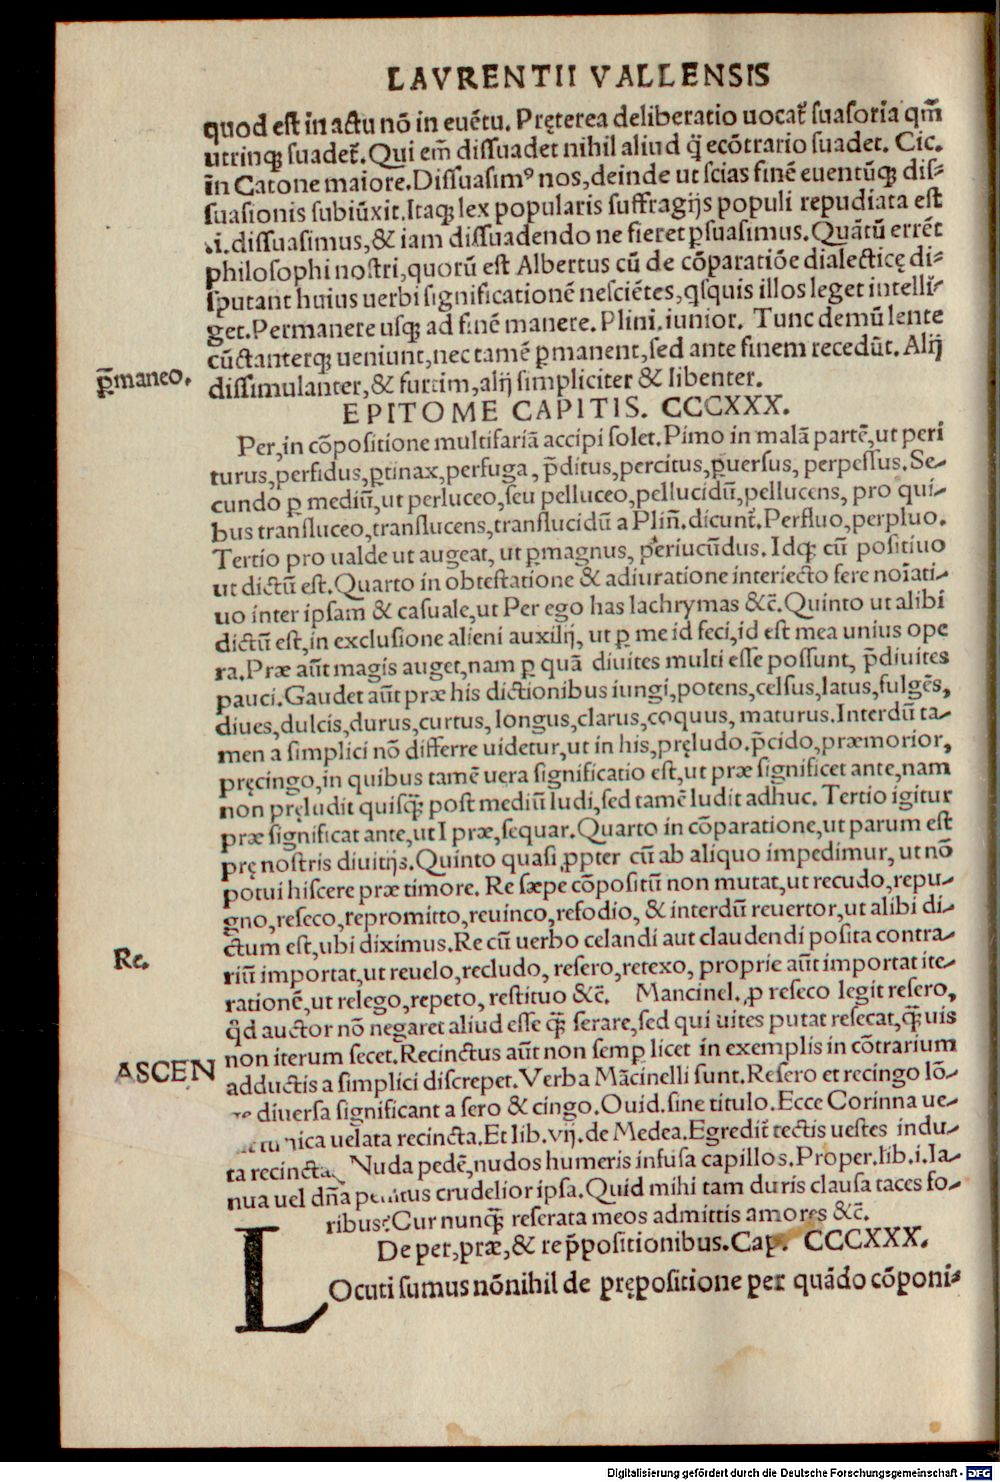 LAVRENTII VALLENSIS
quod est in actu nõ in euẽtu. Pręterea deliberatio uocat᷑ suasoria qm̃
utrinq; suadet᷑. Qui em̃ dissuadet nihil aliud q̃ ecõtrario suadet. Cic.
in Catone maiore. Dissuasimꝰ nos, deinde ut scias finẽ euentũq; dis-
suasionis subiũxit. Itaq; lex popularis suffragijs populi repudiata est
.i. dissuasimus, & iam dissuadendo ne fieret ꝑsuasimus. Quãtũ errẽt
philosophi nostri, quorũ est Albertus cũ de cõparatiõe dialecticę di-
sputant huius uerbi significationẽ nesciẽtes, qsquis illos leget intelli-
get. Permanere usq; ad finẽ manere. Plini. iunior. Tunc demũ lente
cũctanterq; ueniunt, nec tamẽ ꝑmanent, sed ante finem recedũt. Alij
ꝑ̃maneo.
dissimulanter, & furtim, alij simpliciter & libenter.
EPITOME CAPITIS. CCCXXX.
Per, in cõpositione multifariã accipi solet. Pimo in malã partẽ, ut peri
turus, perfidus, ꝑtinax, perfuga, p̃ditus, percitus, ꝑuersus, perpessus. Se-
cundo ꝑ mediũ, ut perluceo, seu pelluceo, pellucidũ, pellucens, pro qui-
bus transluceo, translucens, translucidũ a Plin̄. dicunt᷑. Perfluo, perpluo.
Tertio pro ualde ut augeat, ut ꝑmagnus, periucũdus. Idq; cũ positiuo
ut dictũ est. Quarto in obtestatione & adiuratione interiecto fere noĩati-
uo inter ipsam & casuale, ut Per ego has lachrymas &c̃. Quinto ut alibi
dictũ est, in exclusione alieni auxilij, ut ꝑ me id feci, id est mea unius ope
ra. Præ aũt magis auget, nam ꝑ quã diuites multi esse possunt, p̃diuites
pauci. Gaudet aũt præ his dictionibus iungi, potens, celsus, latus, fulgẽs,
diues, dulcis, durus, curtus, longus, clarus, coquus, maturus. Interdũ ta-
men a simplici nõ differre uidetur, ut in his, pręludo. p̃cido, præmorior,
pręcingo, in quibus tamẽ uera significatio est, ut præ significet ante, nam
non pręludit quisq̃; post mediũ ludi, sed tamẽ ludit adhuc. Tertio igitur
præ significat ante, ut I præ, sequar. Quarto in cõparatione, ut parum est
prę nostris diuitijs. Quinto quasi ꝓpter cũ ab aliquo impedimur, ut nõ
potui hiscere præ timore. Re sæpe cõpositũ non mutat, ut recudo, repu-
gno, reseco, repromitto, reuinco, refodio, & interdũ reuertor, ut alibi di-
ctum est, ubi diximus. Re cũ uerbo celandi aut claudendi posita contra-
Re.
riũ importat, ut reuelo, recludo, resero, retexo, proprie aũt importat ite-
rationẽ, ut relego, repeto, restituo &c̃. Mancinel. ꝓ reseco legit resero,
q̃d auctor nõ negaret aliud esse q̃; serare, sed qui uites putat resecat, q̃;uis
non iterum secet. Recinctus aũt non semꝑ licet in exemplis in cõtrarium
ASCEN
adductis a simplici discrepet. Verba Mãcinelli sunt. Resero et recingo lõ-
ge diuersa significant a sero & cingo. Ouid. sine titulo. Ecce Corinna ue-
nica uelata recincta. Et lib. vij. de Medea. Egredit᷑ tectis uestes indu-
ta recincta. Nuda pedẽ, nudos humeris infusa capillos. Proper. lib. i. Ia-
nua uel dña crudelior ipsa. Quid mihi tam duris clausa taces fo-
ribus? Cur nunq̃; reserata meos admittis amores &c̃.
De per, præ, & re p̃positionibus. Cap. CCCXXX.
LOcuti sumus nõnihil de prępositione per quãdo cõponi-
Digitalisierung gefördert durch die Deutsche Forschungsgemeinschaft - DFG